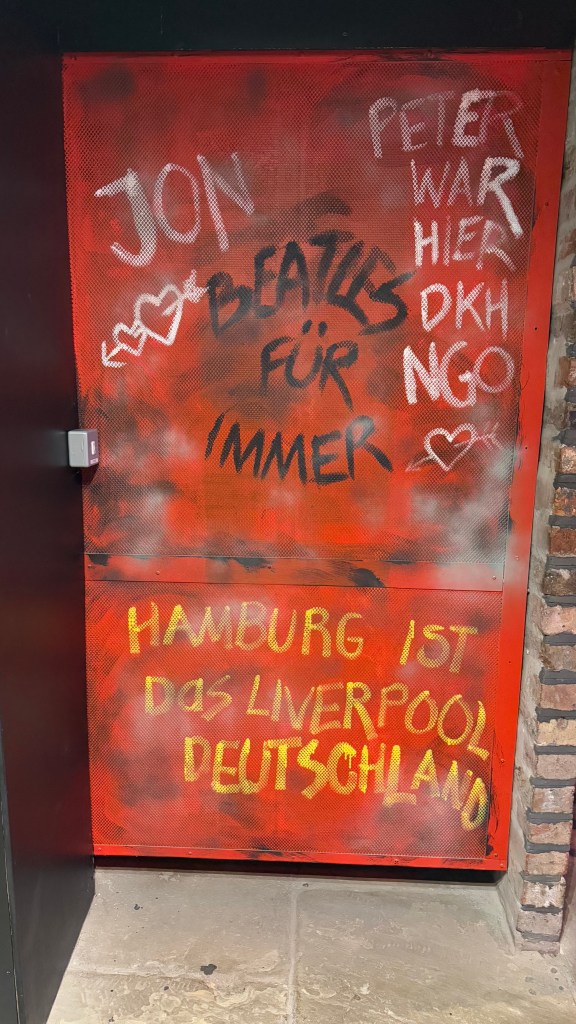 JON
PETER
WAR
HIER
DKH
NGO
BEATLES
FÜR
IMMER
HAMBURG IST
DAS LIVERPOOL
DEUTSCHLAND